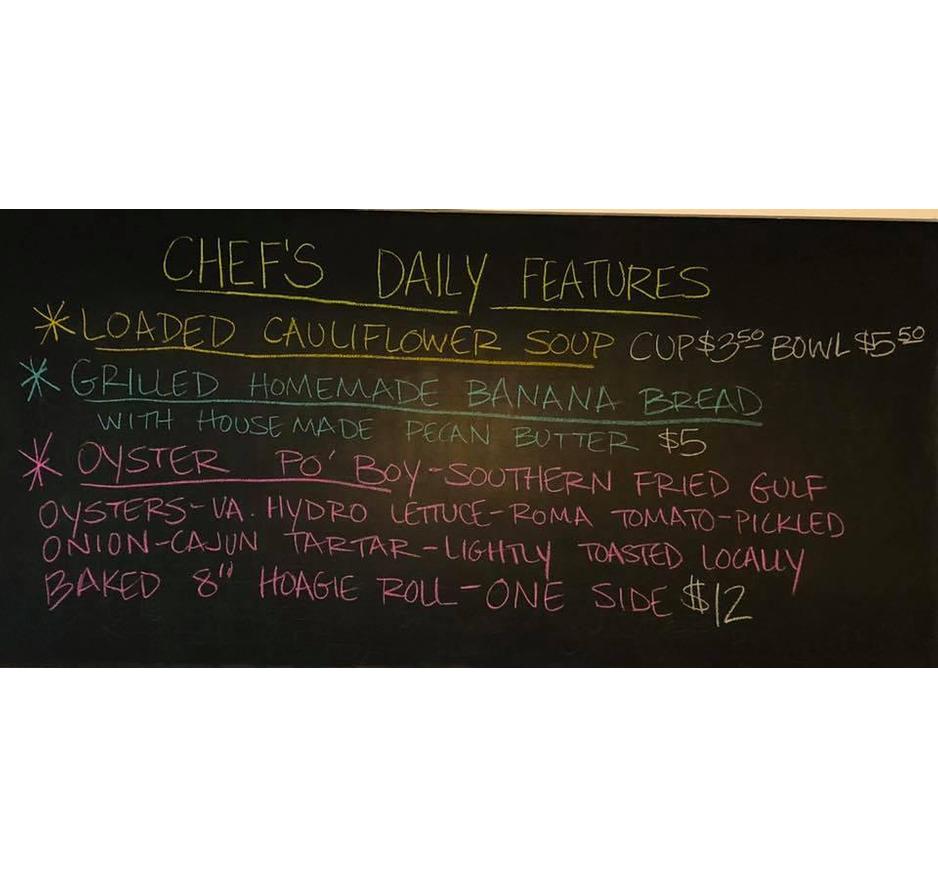 CHEF'S DAILY FEATURES
LOADED CAULIFLOWER SOUP CUP $3.50 BOWL $5.50
GRILLED HOMEMADE BANANA BREAD
WITH HOUSE MADE PECAN BUTTER $5
OYSTER PO' BOY-SOUTHERN FRIED GULF
OYSTERS-VA. HYDRO LETTUCE-ROMA TOMATO-PICKLED
ONION-CAJUN TARTAR-LIGHTLY TOASTED LOCALLY
BAKED 8" HOAGIE ROLL-ONE SIDE $12